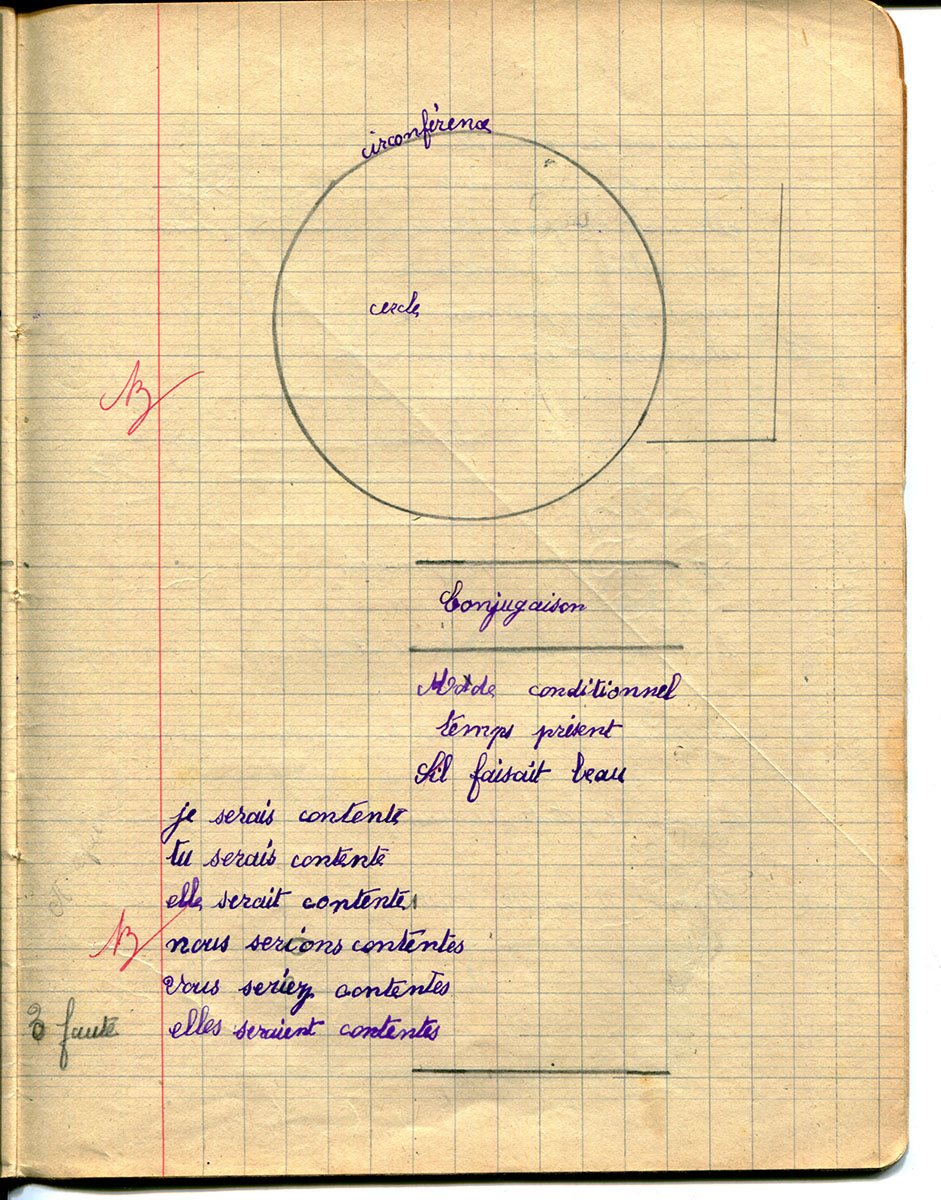 circonférence
cercle
Conjugaison
Mode conditionnel
temps présent
S'il faisait beau
je serais contente
tu serais contente
elle serait contente
B
nous serions contentes
vous seriez contentes
faute
elles seraient contentes